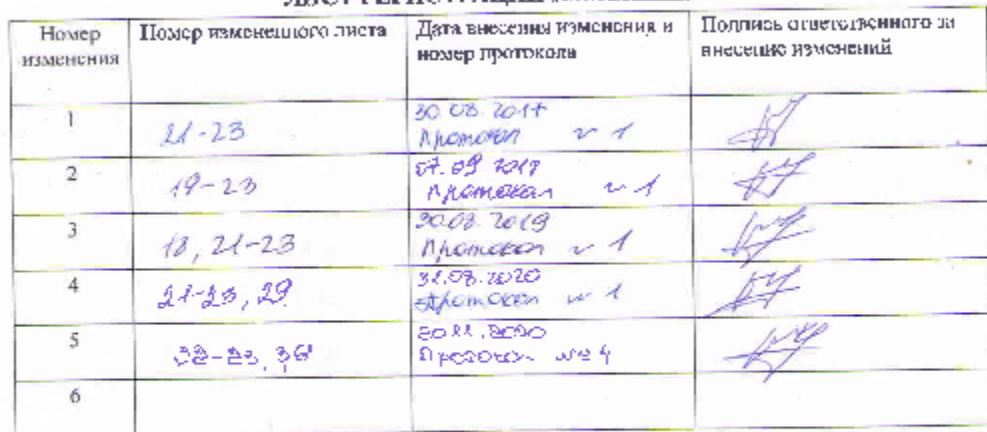 ЛИСТ РЕГИСТРАЦИИ
Номер изменения
Номер измененного листа
Дата внесения изменения и номер протокола
Подпись ответственного за внесение изменений
1
21-23
30.08.2017
Протокол № 1
2
19-23
Протокол № 1
3
18, 21-23
30.08.2019
Протокол № 1
4
21-23, 29
31.08.2020
Протокол № 1
5
Протокол № 4
6